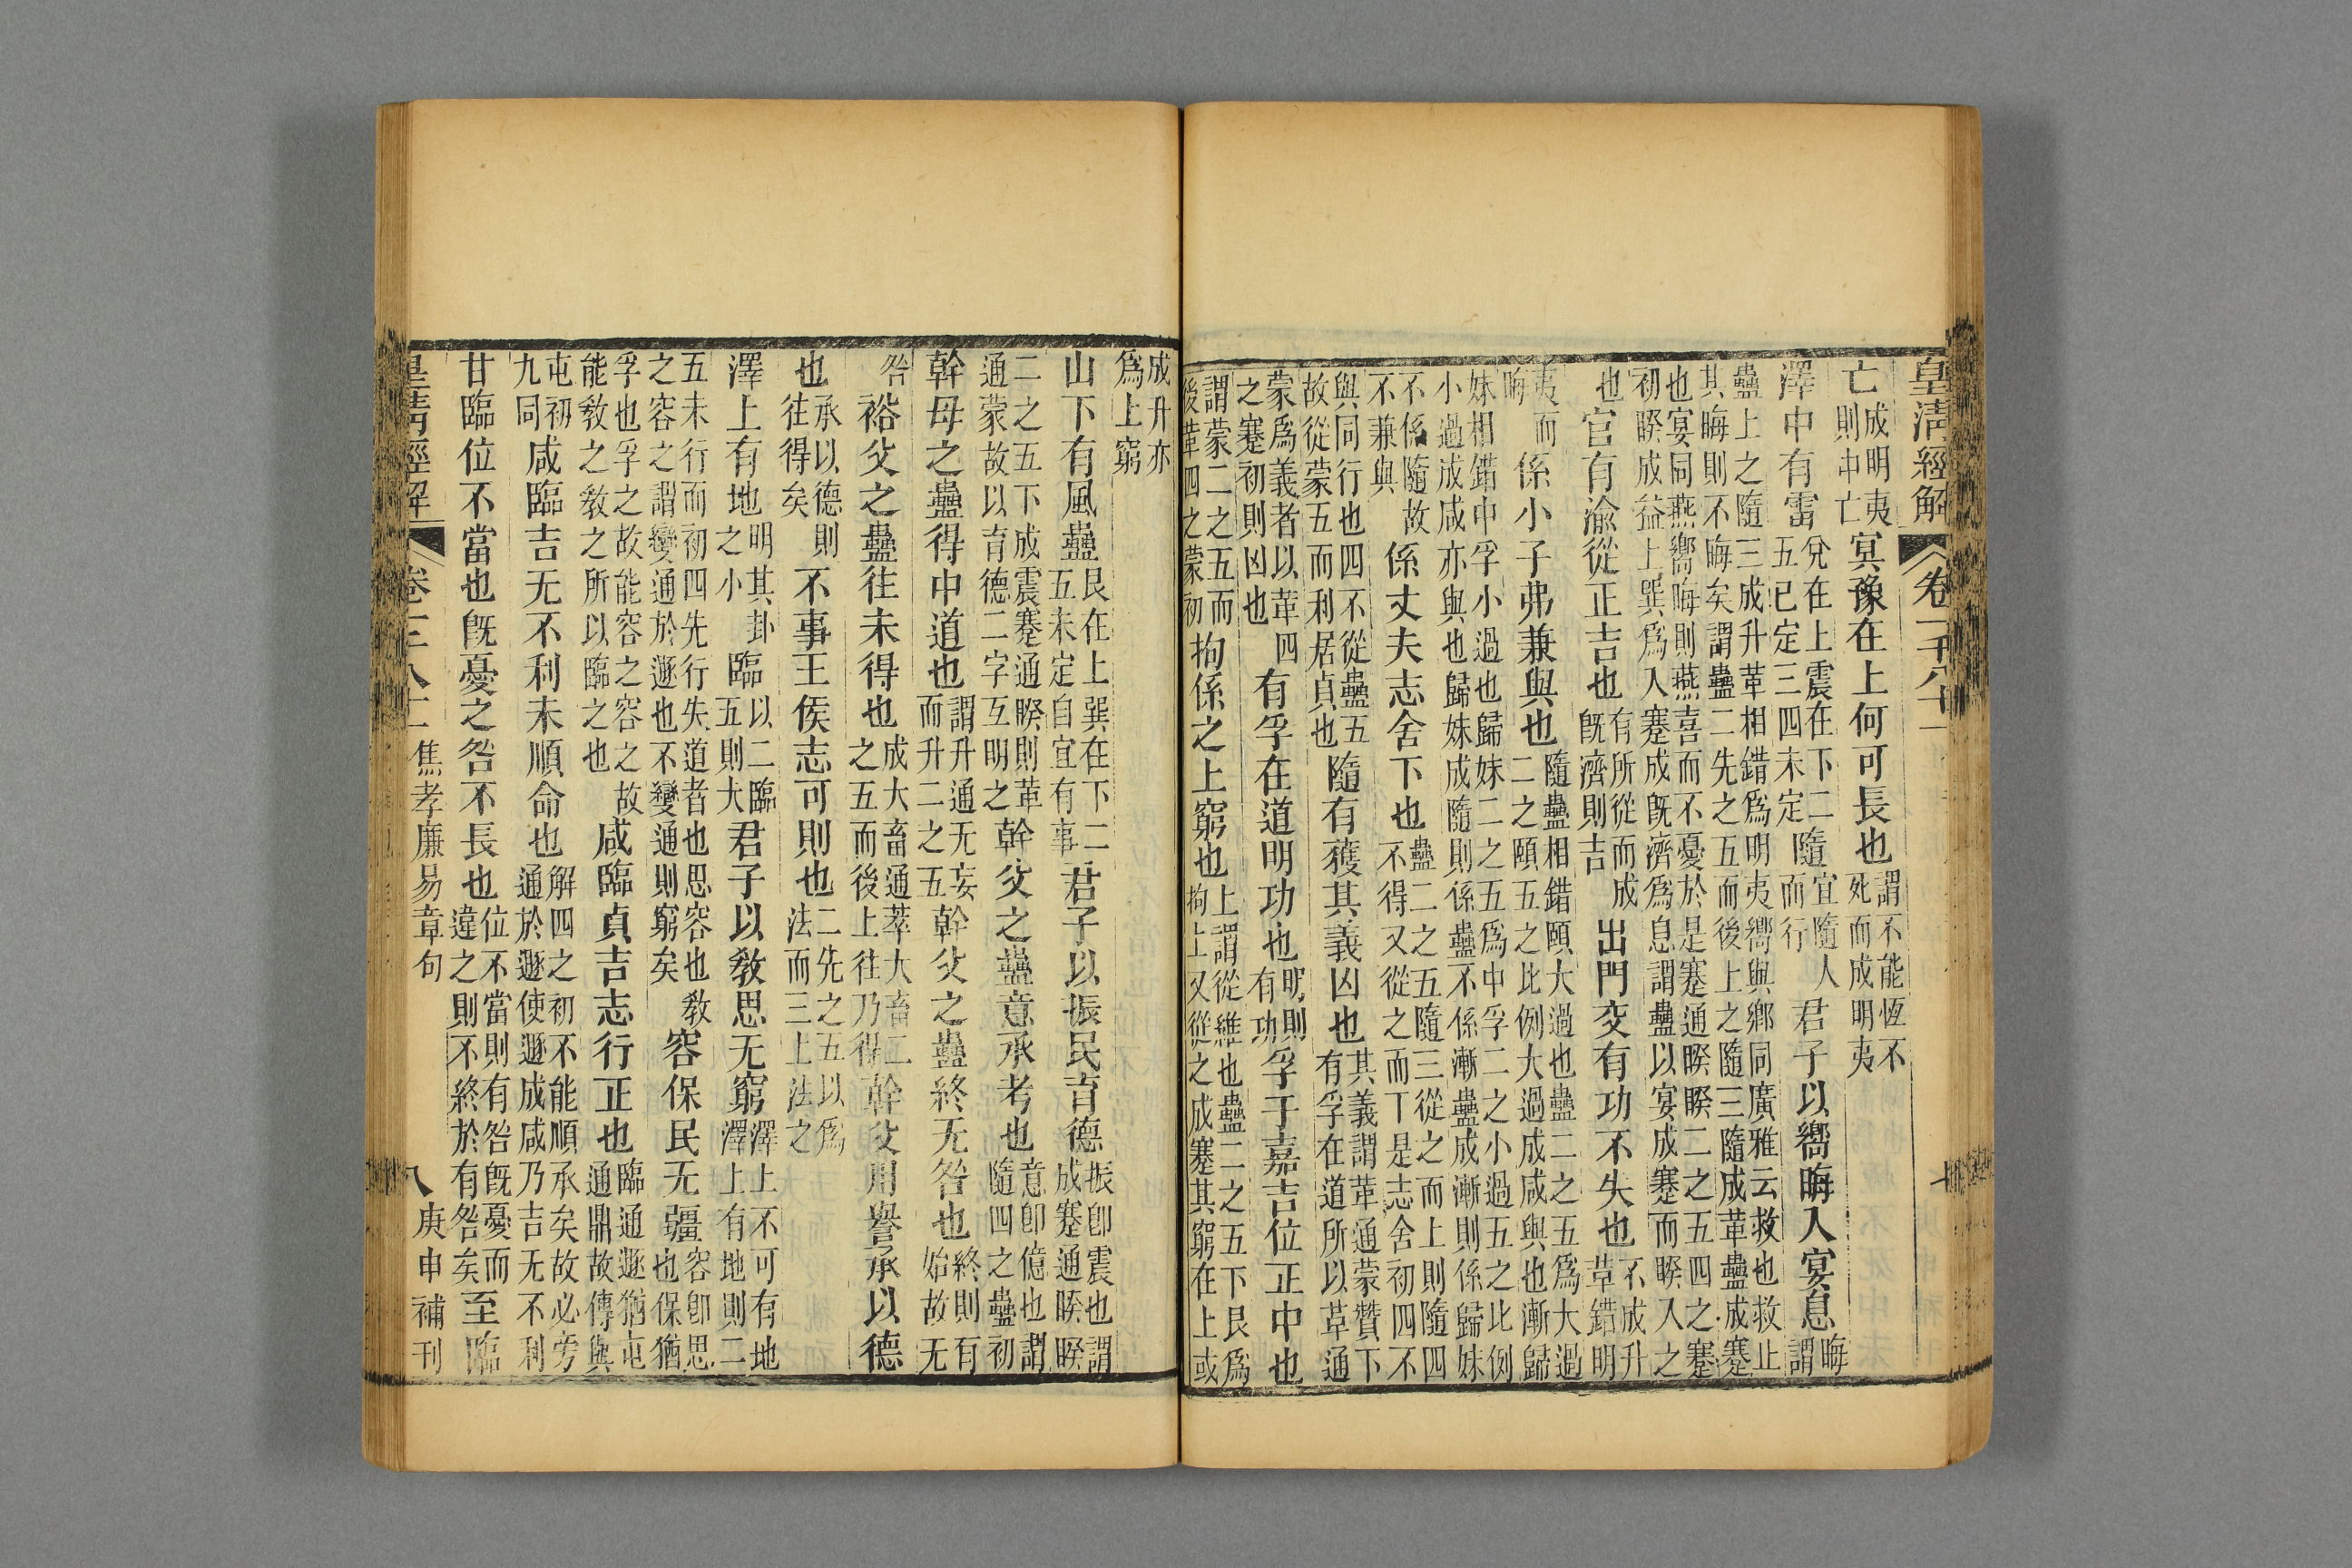 皇清經解 卷一千八十一 七
亡成明夷則中亡冥豫在上何可長也謂不能恆不死而成明夷
澤中有雷兌在上震在下二五已定三四未定隨宜隨人而行君子以嚮晦入宴息晦謂
蠱上之隨三成升革相錯爲明夷嚮與鄉同廣雅云救也救止其晦則不晦矣謂蠱二先之五而後上之隨三隨成革蠱成蹇
也宴同燕嚮晦則燕喜而不憂於是蹇通睽睽二之五四之蹇初睽成益上巽爲入蹇成旣濟爲息謂蠱以宴成蹇而睽入之
也官有渝從正吉也有所從而成旣濟則吉出門交有功不失也不成升草錯明
夷而晦係小子弗兼與也隨蠱相錯頤大過也蠱二之五爲大過二之頤五之比例大過成咸與也漸歸
妹相錯中孚小過也歸妹二之五爲中孚二之小過五之比例小過成咸亦與也歸妹成隨則係蠱不係漸蠱成漸則係歸妹
不係隨故不兼與係丈夫志舍下也蠱二之五隨三從之而上則隨四不得又從之而丅是志舍初四不
與同行也四不從蠱五故從蒙五而利居貞也隨有穫其義凶也其義謂革通蒙贊下有孚在道所以草通
蒙爲義者以革四之蹇初則凶也有孚在道明功也明則有功孚于嘉吉位正中也
謂蒙二之五而後革四之蒙初拘係之上窮也上謂從維也蠱二之五下艮爲拘上又從之成蹇其窮在上或
成升亦爲上窮
山下有風蠱艮在上巽在下二五未定自宜有事君子以振民育德振卽震也謂成蹇通睽睽
二之五下成震蹇通睽則革通蒙故以育德二字互明之幹父之蠱意承考也意卽億也謂隨四之蠱初
幹母之蠱得中道也謂升通无妄而升二之五幹父之蠱終无咎也終則有始故无
咎裕父之蠱往未得也成大畜通萃大畜二之五而後上往乃得幹父用譽承以德
也承以德則往得矣不事王侯志可則也二先之五以爲法而三上法之
澤上有地明其卦之小臨以二臨五則大君子以敎思无窮澤上不可有地澤上有地則二
五未行而初四先行失道者也思容也敎之容之謂變通於遯也不變通則窮矣容保民无疆容卽思也保猶
孚也孚之故能容之容之故能敎之敎之所以臨之也咸臨貞吉志行正也臨通遯猶屯通鼎故傳與
屯初九同咸臨吉无不利未順命也解四之初不能順承矣故必旁通於遯使遯成咸乃吉无不利
甘臨位不當也旣憂之咎不長也位不當則有咎旣憂而違之則不終於有咎矣至臨
皇清經解 焦孝廉易章句 八 庚申補刊